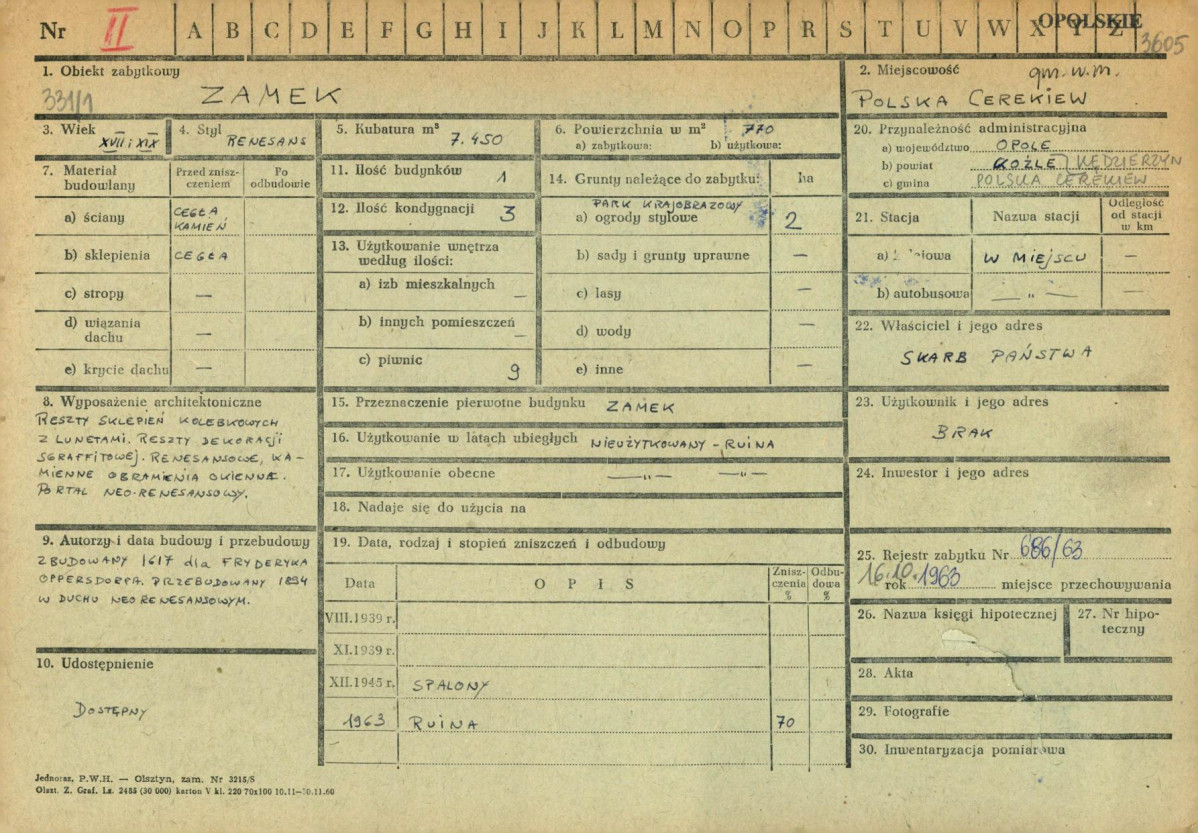 Nr II A B C D E F G H I J K L M N O P R S T U V W X Y Z OPOLSKIE
3605
1. Obiekt zabytkowy
331/1
ZAMEK
2. Miejscowość gm. w.m.
POLSKA CEREKIEW
3. Wiek
XVII i XIX
4. Styl
RENESANS
5. Kubatura m³
7.450
6. Powierzchnia w m² 770
a) zabytkowa: b) użytkowa:
20. Przynależność administracyjna
a) województwo OPOLE
b) powiat KOŹLE / KĘDZIERZYN
c) gmina POLSKA CEREKIEW
7. Materiał budowlany
Przed znisz-
czeniem
Po
odbudowie
a) ściany CEGŁA,
KAMIEŃ
b) sklepienia CEGŁA
c) stropy —
d) wiązania
dachu —
e) krycie dachu —
11. Ilość budynków 1
12. Ilość kondygnacji 3
13. Użytkowanie wnętrza
według ilości:
a) izb mieszkalnych —
b) innych pomieszczeń —
c) piwnic 9
14. Grunty należące do zabytku: ha
PARK KRAJOBRAZOWY
a) ogrody stylowe 2
b) sady i grunty uprawne —
c) lasy —
d) wody —
e) inne —
21. Stacja Nazwa stacji
Odległość
od stacji
w km
a) W MIEJSCU —
b) autobusowa — „ — —
22. Właściciel i jego adres
SKARB PAŃSTWA
8. Wyposażenie architektoniczne
RESZTY SKLEPIEŃ KOLEBKOWYCH
Z LUNETAMI. RESZTY DEKORACJI
SGRAFFITOWEJ. RENESANSOWE, KA-
MIENNE OBRAMIENIA OKIENNE.
PORTAL NEO-RENESANSOWY.
15. Przeznaczenie pierwotne budynku ZAMEK
16. Użytkowanie w latach ubiegłych NIEUŻYTKOWANY - RUINA
17. Użytkowanie obecne — „ — — „ —
18. Nadaje się do użycia na
23. Użytkownik i jego adres
BRAK
24. Inwestor i jego adres
9. Autorzy i data budowy i przebudowy
ZBUDOWANY 1617 dla FRYDERYKA
OPPERSDORFA. PRZEBUDOWANY 1894
W DUCHU NEORENESANSOWYM.
19. Data, rodzaj i stopień zniszczeń i odbudowy
Data OPIS
Znisz-
czenia
%
Odbu-
dowa
%
VIII.1939 r.
XI.1939 r.
XII.1945 r. SPALONY
1963 RUINA 70
25. Rejestr zabytku Nr 686/63
16.10.1963
rok miejsce przechowywania
26. Nazwa księgi hipotecznej
27. Nr hipo-
teczny
28. Akta
29. Fotografie
30. Inwentaryzacja pomiarowa
10. Udostępnienie
DOSTĘPNY
Jednoraz. P.W.H. — Olsztyn, zam. Nr 3215/S
Olszt. Z. Graf. Lz. 2485 (30 000) karton V kl. 220 70x100